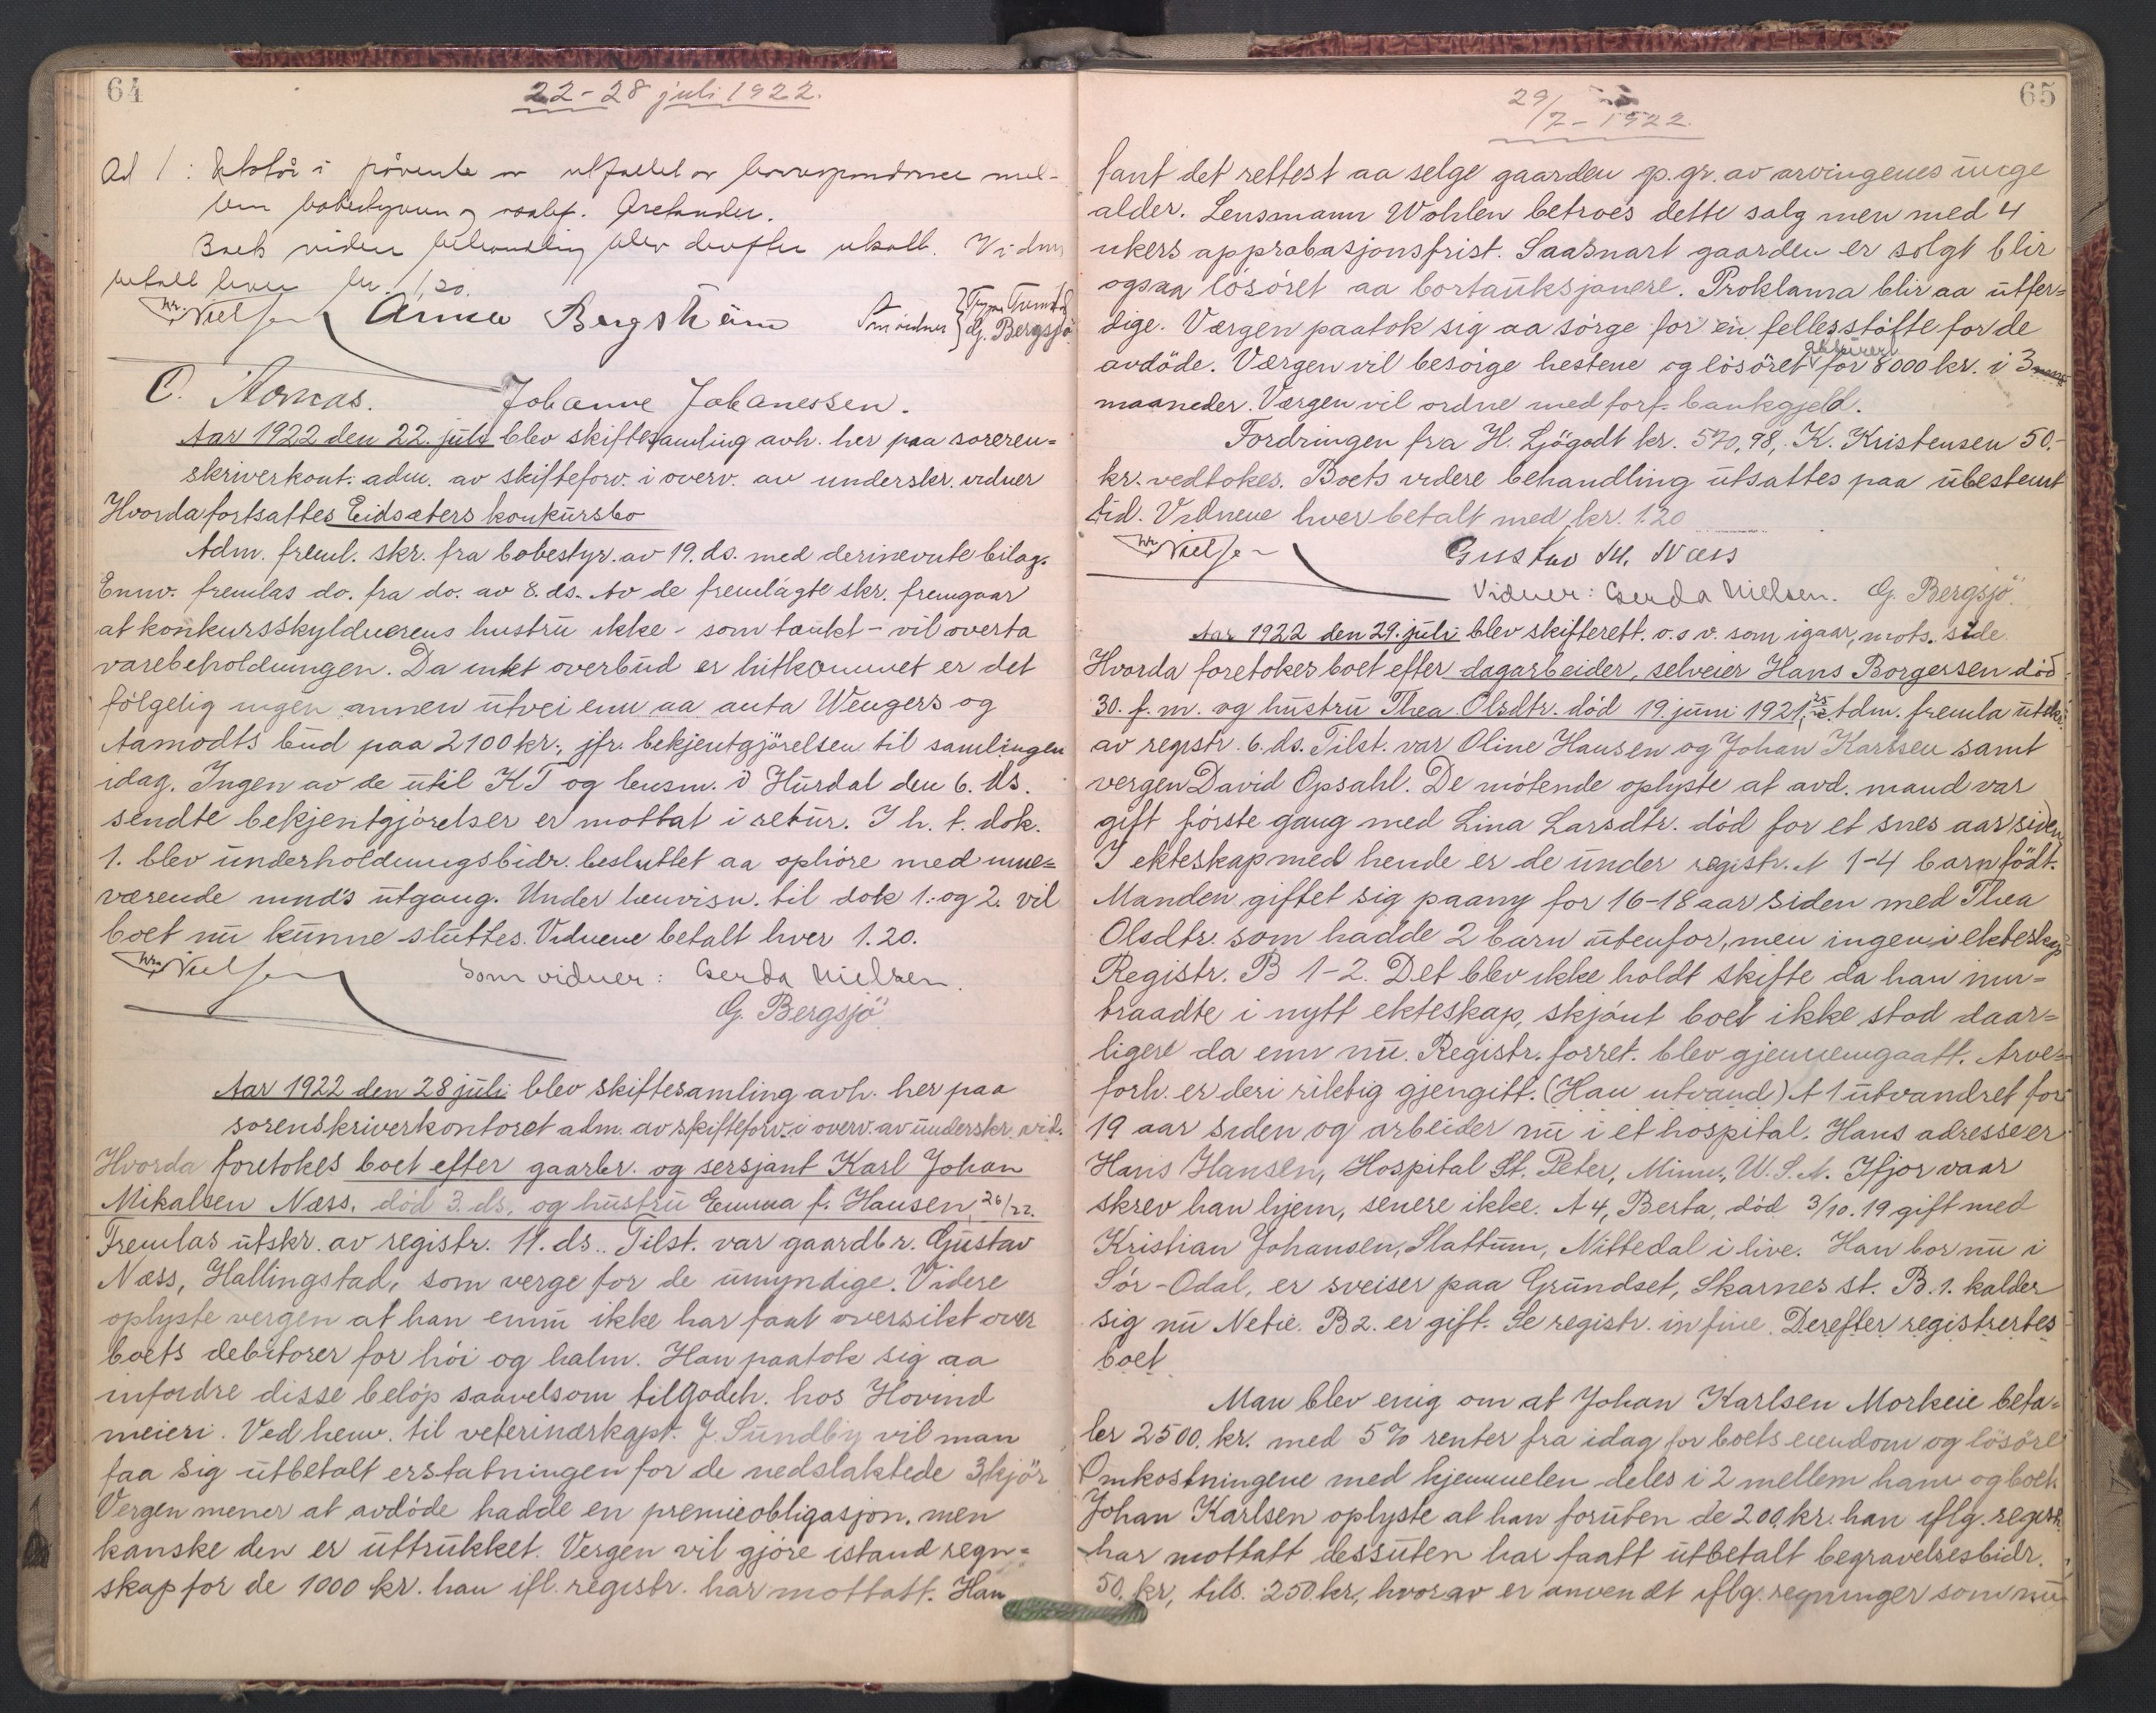 64
22-28 juli 1922.
Ad 1: i påvente av utfallet av korrespondanse mel-
lem bobestyreren og
Boets videre behandling blev derefter utsatt. Vidner
betalt hver kr. 1,20.
Nielsen Anna Bergström Som vidner G. Bergsjö
C. Aamaas. Johanne Johanessen.
Aar 1922 den 22. juli blev skiftesamling avh. her paa soreren=
skriverkont. adm. av skifteforv. i overv. av underskr. vidner
Hvorda fortsattes Eidsæters konkursbo
Adm. freml. skr. fra bobestyr. av 19. ds. med derinevnte bilag.
Ennv. fremlas do. fra do. av 8. ds. Av de fremlagte skr. fremgaar
at konkursskyldnerens hustru ikke - som tænkt - vil overta
varebeholdningen. Da intet overbud er hitkommet er det
fölgelig ingen annen utvei enn aa anta Wengers og
Aamodts bud paa 2100 kr., jfr. bekjentgjörelsen til samlingen
idag. Ingen av de util KT og lensm. i Hurdal den 6. ds.
sendte bekjentgjörelser er mottat i retur. I h. t. dok.
1. blev underholdningsbidr. besluttet aa ophöre med inne=
værende mnds utgang. Under henvisn. til dok 1. og 2. vil
boet nu kunne sluttes. Vidnene betalt hver 1.20.
Nielsen Som vidner: Gerda Nielsen.
G. Bergsjö
Aar 1922 den 28 juli blev skiftesamling avh. her paa
sorenskriverkontoret adm. av skifteforv. i overv. av underskr. vid.
Hvorda foretokes boet efter gaardbr. og sersjant Karl Johan
Mikalsen Næss, död 3. ds, og hustru Emma f. Hansen, 26/22.
Fremlas utskr. av registr. 11. ds.. Tilst. var gaardbr. Gustav
Næss, Hallingstad, som verge for de umyndige. Videre
oplyste vergen at han ennu ikke har faat oversikt over
boets debitorer for höi og halm. Han paatok sig aa
infordre disse belöp saavelsom tilgodeh. hos Hovind
meieri. Ved henv. til veterinærkapt. J. Sundby vil man
faa sig utbetalt erstatningen for de nedslaktede 3 kjör
Vergen mener at avdöde hadde en premieobligasjon, men
kanske den er uttrukket. Vergen vil gjöre istand regn=
skap for de 1000 kr. han ifl. registr. har mottatt. Han
65
29/7-1922
fant det rettest aa selge gaarden p. gr. av arvingenes unge
alder. Lensmann Wohlen betroes dette salg men med 4
ukers approbasjonsfrist. Saasnart gaarden er solgt blir
ogsaa lösöret aa bortauksjonere. Proklama blir aa utfer=
dige. Værgen paatok sig aa sörge for en fellesstötte for de
avdöde. Værgen vil besörge hestene og lösöret assurert for 8000 kr. i 3
maaneder. Værgen vil ordne med forf. bankgjeld.
Fordringen fra H. Ljögodt kr. 570,98, K. Kristensen 50.-
kr. vedtokes. Boets videre behandling utsattes paa ubestemt
tid. Vidnene hver betalt med kr. 1.20
Nielsen Gustav M. Næss
Vidner: Gerda Nielsen. G. Bergsjö.
Aar 1922 den 29. juli blev skifterett. o.s.v. som igaar, mots. side.
Hvorda foretokes boet efter dagarbeider, selveier Hans Borgersen död
30. f. m. og hustru Thea Olsdtr. död 19. juni 1921, Adm. fremla utskr.
av registr. 6. ds. Tilst. var Oline Hansen og Johan Karlsen samt
vergen David Opsahl. De mötende oplyste at avd. mand var
gift förste gang med Lina Larsdtr. död for et snes aar siden
I ekteskap med hende er de under registr. A 1-4 barn födt.
Manden giftet sig paany for 16-18 aar siden med Thea
Olsdtr. som hadde 2 barn utenfor, men ingen i ekteskap
Registr. B 1-2. Det blev ikke holdt skifte da han inn-
traadte i nytt ekteskap, skjönt boet ikke stod daar=
ligere da enn nu. Registr. forret. blev gjennemgaatt. Arve=
forh. er deri riktig gjengitt. (Han utvand) A 1 utvandret for
19 aar siden og arbeider nu i et hospital. Hans adresse er
Hans Hansen, Hospital St. Peter, Minn., U.S.A. Ifjor vaar
skrev han hjem, senere ikke. A 4, Berta, död 3/10.19 gift med
Kristian Johansen, Slattum, Nittedal i live. Han bor nu i
Sör-Odal, er sveiser paa Grundset, Skarnes st. B. 1. kalder
sig nu Netie. B 2. er gift. Se registr. in fine. Derefter registrertes
boet
Man blev enig om at Johan Karlsen Morkeie beta=
ler 2500. kr. med 5% renter fra idag for boets eiendom og lösöre
Omkostningene med hjemmelen deles i 2 mellem ham og boet.
Johan Karlsen oplyste at han foruten de 200. kr. han iflg. registr.
har mottatt dessuten har faatt utbetalt begravelsesbidr.
50. kr, tils. 250 kr., hvorav er anvendt iflg. regninger som nu